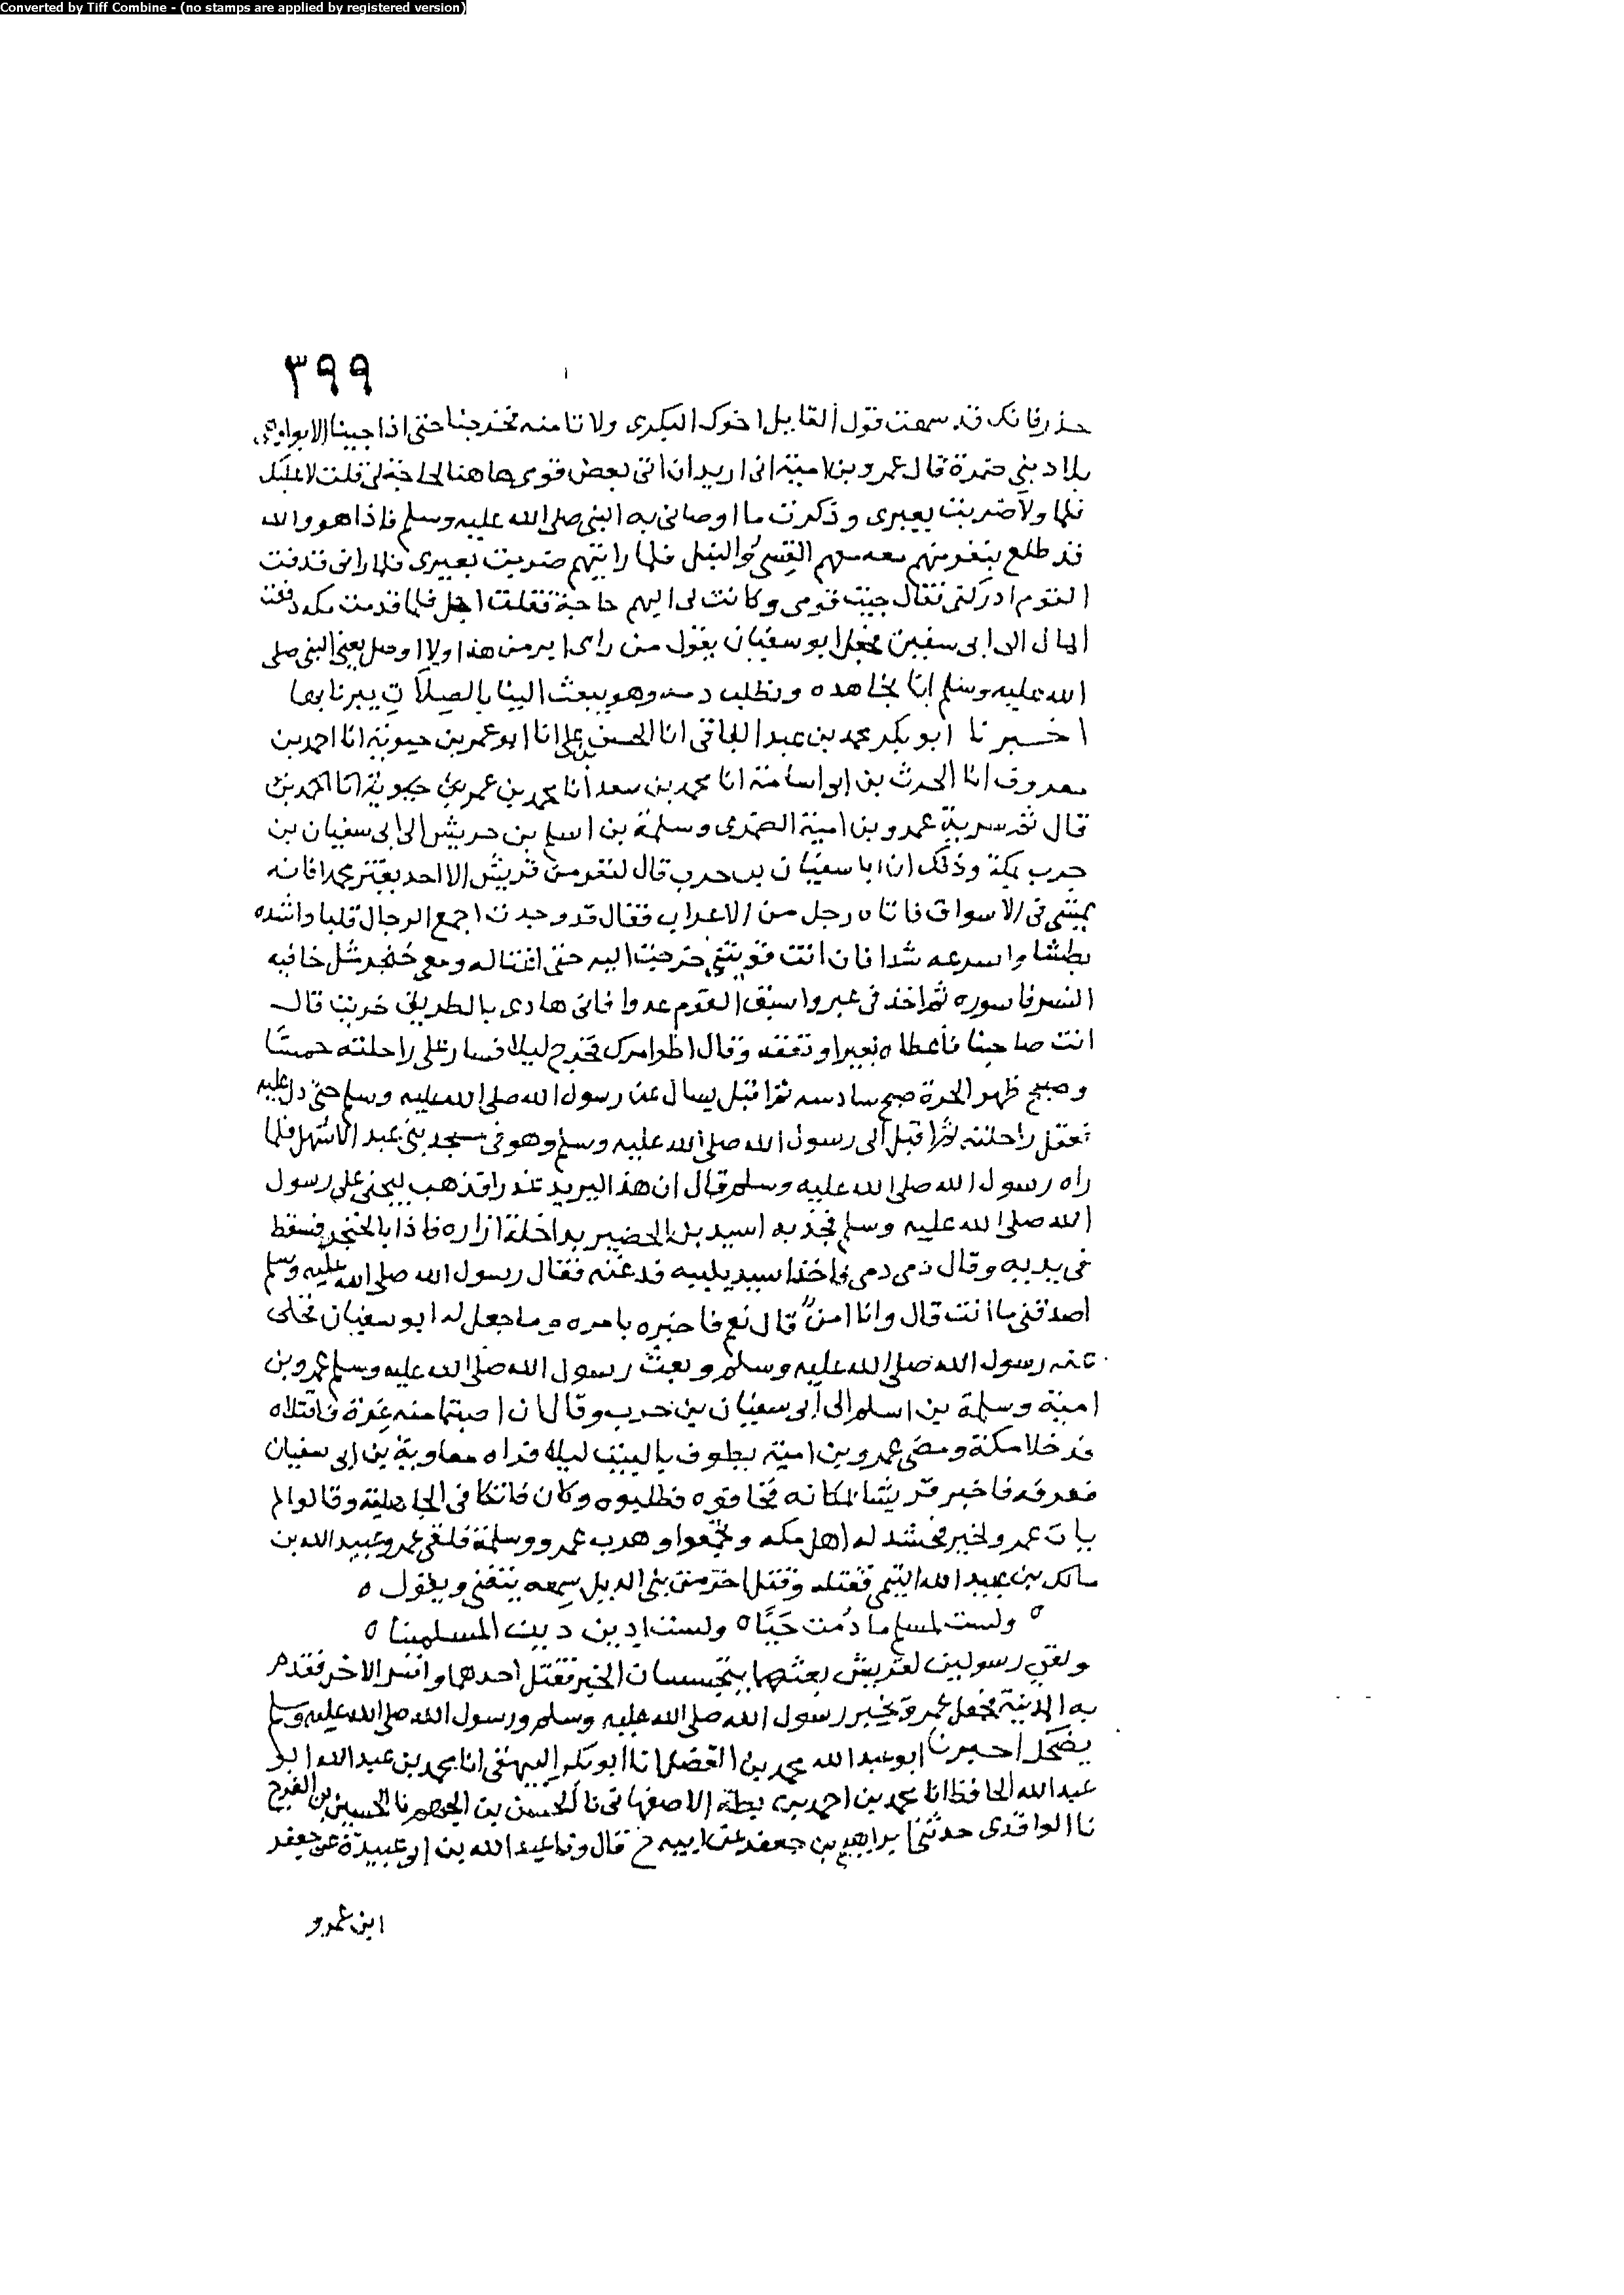 Converted by Tiff Combine - (no stamps are applied by registered version)
٣٩٩
حذر فانك قد سمعت قول القايل اخوك البكرى ولا تامنه فخرجنا حتى اذا جينا الابوا
بلاد بني ضمرة قال عمرو بن امية انى اريد ان اتى بعض قومى هاهنا لحاجة لى قلت لا عليك
فلما ولا ضربت بعيرى وذكرت ما اوصانى به النبى صلى الله عليه وسلم فاذا هو والله
قد طلع بنفر منهم معه معهم القسى والنبل فلما رايتهم ضربت بعيرى فلما رانى قد فت
القوم ادركنى فقال جيت قومى وكانت لى اليهم حاجة فقلت اجل فلما قدمت مكه دفعت
المال الى ابى سفين فجعل ابو سفيان يقول من راى ابر من هذا ولا اوصل يعنى النبى صلى
الله عليه وسلم انا نجاهده ونطلب دمه وهو يبعث الينا بالصلات يبرنا بها
اخبرنا ابو بكر محمد بن عبد الباقى انا الحسن بن على انا ابو عمر بن حيوية انا احمد بن
معروف انا الحرث بن ابى اسامة انا محمد بن سعد انا محمد بن عمر بن حيوية انا احمد بن
قال ثم سرية عمرو بن امية الضمرى وسلمة بن اسلم بن حريش الى ابى سفيان بن
حرب بمكة وذلك ان ابا سفيان بن حرب قال لنفر من قريش الا احد يغتر محمدا فانه
يمشى فى الاسواق فاتاه رجل من الاعراب فقال قد وجدت اجمع الرجال قلبا واشده
بطشا واسرعه شدا فان انت قويتنى خرجت اليه حتى اغتاله ومعى خنجر مثل خافيه
النسر فاسوره ثم اخذ فى عير واسبق القوم عدوا فانى هادى بالطريق خريت قال
انت صاحبنا فاعطاه بعيرا ونفقه وقال اطو امرك فخرج ليلا فسار على راحلته خمسا
وصبح ظهر الحرة صبح سادسه ثم اقبل يسال عن رسول الله صلى الله عليه وسلم حتى دل عليه
فعقل راحلته ثم اقبل الى رسول الله صلى الله عليه وسلم وهو فى مسجد بنى عبد الاشهل فلما
راه رسول الله صلى الله عليه وسلم قال ان هذا ليريد غدرا فذهب ليجنى على رسول
الله صلى الله عليه وسلم فجذبه اسيد بن الحضير بداخلة ازاره فاذا بالخنجر فسقط
فى يديه وقال دمى دمى فاخذ اسيد بلببه فدعته فقال رسول الله صلى الله عليه وسلم
اصدقنى ما انت قال وانا امن قال نعم فاخبره بامره وما جعل له ابو سفيان فخلى
عنه رسول الله صلى الله عليه وسلم وبعث رسول الله صلى الله عليه وسلم عمرو بن
امية وسلمة بن اسلم الى ابى سفيان بن حرب وقال ان اصبتما منه غرة فاقتلاه
فدخلا مكة ومضى عمرو بن امية يطوف بالبيت ليلا فراه معاوية بن ابى سفيان
فعرفه فاخبر قريشا بمكانه فخافوه فطلبوه وكان فاتكا فى الجاهلية وقالوا لم
يات عمرو لخير فحشد له اهل مكه وتجمعوا وهرب عمرو وسلمة فلقى عمرو عبيد الله بن
مالك بن عبيد الله التيمى فقتله وقتل اخر من بنى الديل سمعه يتغنى ويقول ه
ه ولست بمسلم ما دمت حيا ه ولست ادين دين المسلمينا ه
ولقى رسولين لقريش بعثهما يتجسسان الخبر فقتل احدهما واسر الاخر فقدم
به المدينة فجعل عمرو يخبر رسول الله صلى الله عليه وسلم ورسول الله صلى الله عليه وسلم
يضحك اخبرنا ابو عبد الله محمد بن الفضل انا ابو بكر البيهقى انا محمد بن عبد الله ابو
عبد الله الحافظ انا محمد بن احمد بن بطة الاصفهانى نا الحسن بن الجهم نا الحسين بن الفرج
نا الواقدى حدثنى ابراهيم بن جعفر عن ابيه ح قال ونا عبد الله بن ابو عبيدة عن جعفر
ابن عمرو